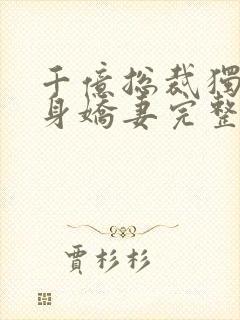 千億總裁獨
身嬌妻完整
賈杉杉